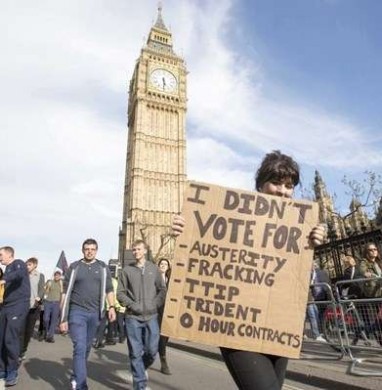 I DIDN'T
VOTE FOR
- AUSTERITY
- FRACKING
- TTIP
- TRIDENT
- 0 HOUR CONTRACTS